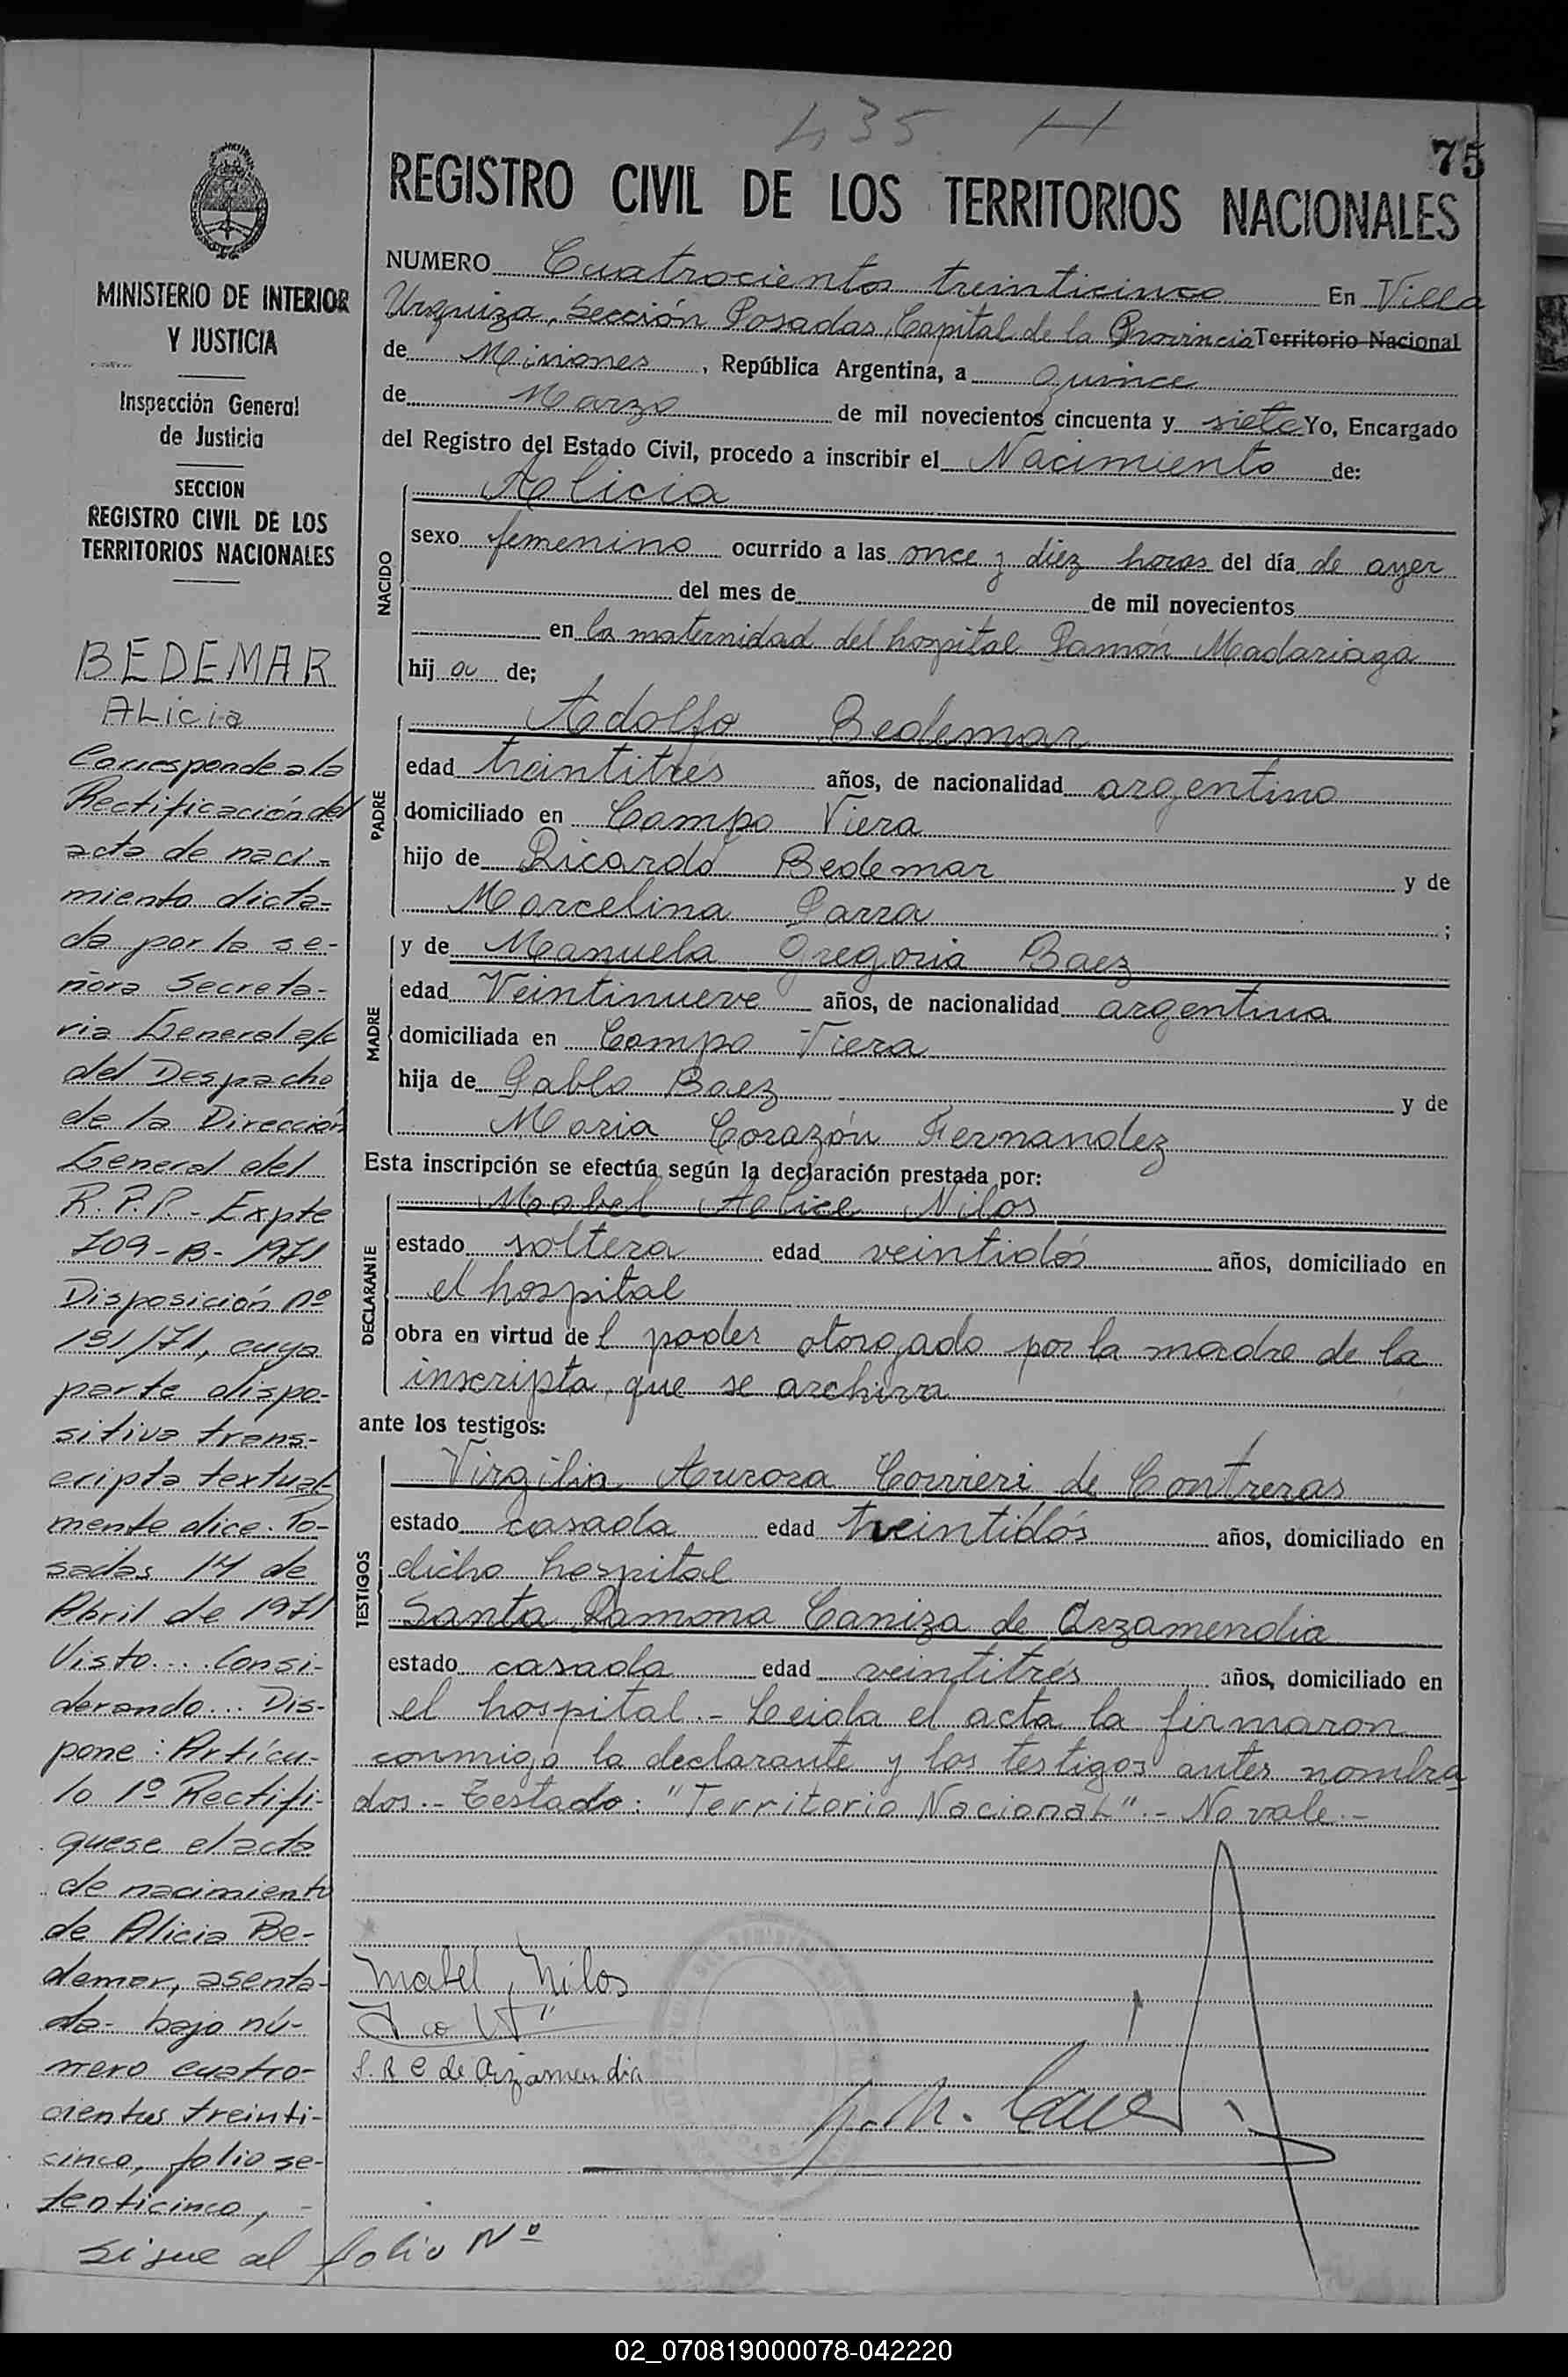 435 H
75
REGISTRO CIVIL DE LOS TERRITORIOS NACIONALES
MINISTERIO DE INTERIOR
Y JUSTICIA
Inspección General
de Justicia
SECCION
REGISTRO CIVIL DE LOS
TERRITORIOS NACIONALES
BEDEMAR
ALicia
Corresponde a la
Rectificación del
acta de naci-
miento dicta-
da por la se-
ñora Secreta-
ria General a/c
del Despacho
de la Dirección
General del
R.P.P. - Expte
709-B-1971
Disposición nº
131/71, cuya
parte dispo-
sitiva trans-
cripta textual-
mente dice. Po-
sadas 14 de
Abril de 1971
Visto... Consi-
derando... Dis-
pone: Artícu-
lo 1º Rectifi-
quese el acta
de nacimiento
de Alicia Be-
demar, asenta-
da- bajo nú-
mero cuatro-
cientos treinti-
cinco, folio se-
tenticinco, -
sigue al folio Nº
NUMERO Cuatrocientos treinticinco En Villa
Urquiza, Sección Posadas, Capital de la Provincia Territorio Nacional
de Misiones, República Argentina, a quince
de Marzo de mil novecientos cincuenta y siete Yo, Encargado
del Registro del Estado Civil, procedo a inscribir el Nacimiento de:
NACIDO
Alicia
sexo femenino ocurrido a las once y diez horas del día de ayer
del mes de de mil novecientos
en la maternidad del hospital Ramón Madariaga
hij a de;
PADRE
Adolfo Bedemar
edad treintitrés años, de nacionalidad argentino
domiciliado en Campo Viera
hijo de Ricardo Bedemar y de
Marcelina Parra ;
MADRE
y de Manuela Gregoria Baez
edad Veintinueve años, de nacionalidad argentina
domiciliada en Campo Viera
hija de Pablo Baez y de
Maria Corazón Fernandez
Esta inscripción se efectúa según la declaración prestada por:
DECLARANTE
Mabel Alice Nilos
estado soltera edad veintidós años, domiciliado en
el hospital
obra en virtud del poder otorgado por la madre de la
inscripta, que se archiva
ante los testigos:
TESTIGOS
Virgilia Aurora Corrieri de Contreras
estado casada edad treintidós años, domiciliado en
dicho hospital
Santa Ramona Caniza de Arzamendia
estado casada edad veintitrés años, domiciliado en
el hospital.- Leida el acta la firmaron
conmigo la declarante y los testigos antes nombra
dos.- Testado: "Territorio Nacional".- No vale.-
Mabel Nilos
S. R C de Arzamendia
02_070819000078-042220